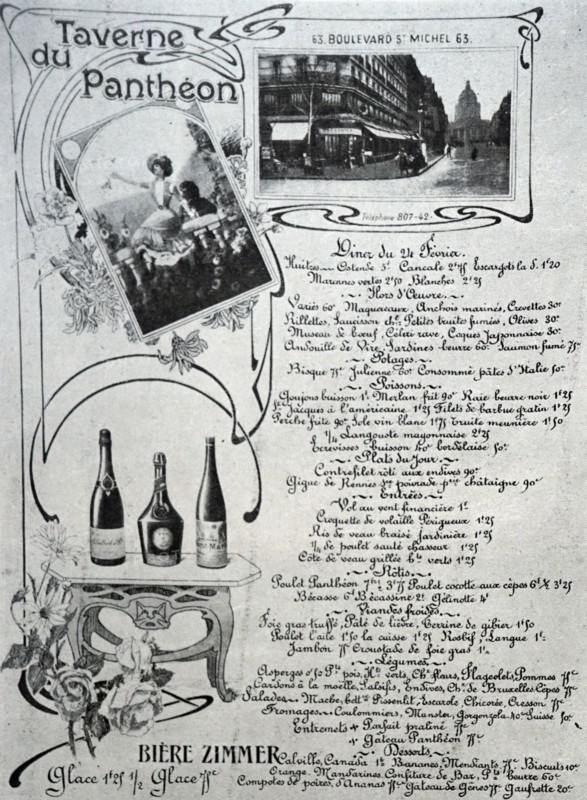 Taverne
du Panthéon
63. BOULEVARD St MICHEL 63.
Téléphone 807-42
Diner du 24 Février.
Huitres Ostende 3f Cancale 2f75 Escargots la d. 1f20
Marennes vertes 2f50 Blanches 2f25
Hors d'Œuvre.
Variés 60c Maquereaux, Anchois marinés, Crevettes 30c
Rillettes, Saucisson Petites truites fumées, Olives 30c
Museau de bœuf, Céleri rave, Coques Japonnaise 30c
Andouille de Vire, Sardines beurre 60c Saumon fumé 75c
Potages.
Bisque 75c Julienne 60c Consommé pâtes d'Italie 50c
Poissons.
Goujons buisson 1f Merlan frit 90c Raie beurre noir 1f25
St Jacques à l'américaine 1f25 Filets de barbue gratin 1f25
Perche frite 90c Sole vin blanc 1f75 Truite meunière 1f50
1/4 Langouste mayonnaise 2f25
Ecrevisses buisson 40c bordelaise 50c
Plats du Jour.
Contrefilet rôti aux endives 90c
Gigue de Rennes poivrade châtaigne 90c
Entrées.
Vol au vent financière 1f
Croquette de volaille Périgueux 1f25
Ris de veau braisé Jardinière 1f25
1/4 de poulet sauté chasseur 1f25
Côte de veau grillée verts 1f25
Rôtis
Poulet Panthéon 3f75 Poulet cocotte aux cèpes 3f25
Bécasse 6f Bécassine 2f Gélinotte 4f
Viandes froides.
Foie gras truffé, Pâté de lièvre, Terrine de gibier 1f50
Poulet l'aile 1f50 la cuisse 1f25 Rosbif, Langue 1f
Jambon 75c Croustade de foie gras 1f
Légumes.
Asperges Pts pois, Hts verts, Chx fleurs, Flageolets, Pommes 75c
Cardons à la moelle, Salsifis, Endives, Chx de Bruxelles Cèpes 75c
Salades Mache, Pissenlit, Escarole, Chicorée, Cresson 75c
Fromages Coulommiers, Munster, Gorgonzola 40c Suisse 50c
Entremets Parfait praliné 75c
Gateau Panthéon 75c
Desserts.
Calville, Canada 1f Bananes, Mendiants 75c Biscuits 10c
Orange, Mandarines, Confiture de Bar, Pts beurre 60c
Compotes de poires, d'Ananas 75c Gateau de Gênes 75c Gaufrette 20c
BIÈRE ZIMMER
Glace 1f25 1/2 Glace 75c